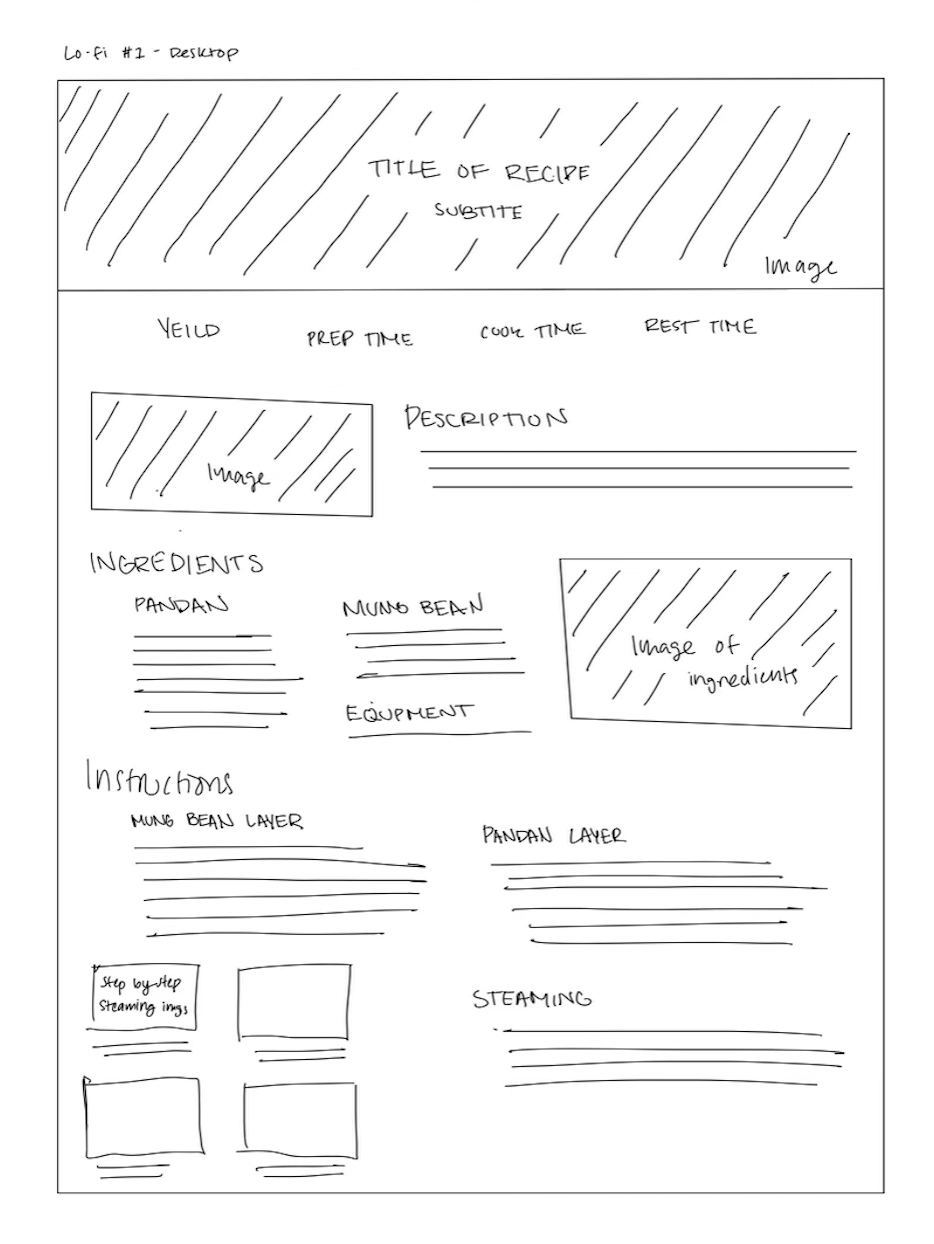 Lo-fi #1 - Desktop
TITLE OF RECIPE
SUBTITE
Image
YEILD
PREP TIME
COOK TIME
REST TIME
Image
DESCRIPTION
INGREDIENTS
PANDAN
MUNG BEAN
EQUPMENT
Image of
ingredients
Instructions
MUNG BEAN LAYER
PANDAN LAYER
Step by step
Steaming imgs
STEAMING